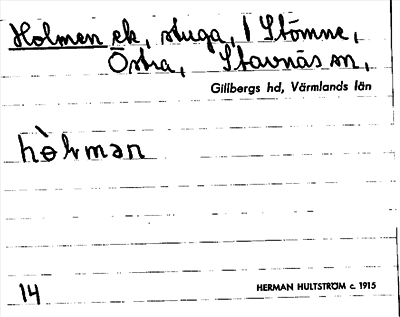 Holmen ek, stuga, 1 Stömne,
Östra, Stavnäs sn,
Gillbergs hd, Värmlands län
14
HERMAN HULTSTRÖM c. 1915